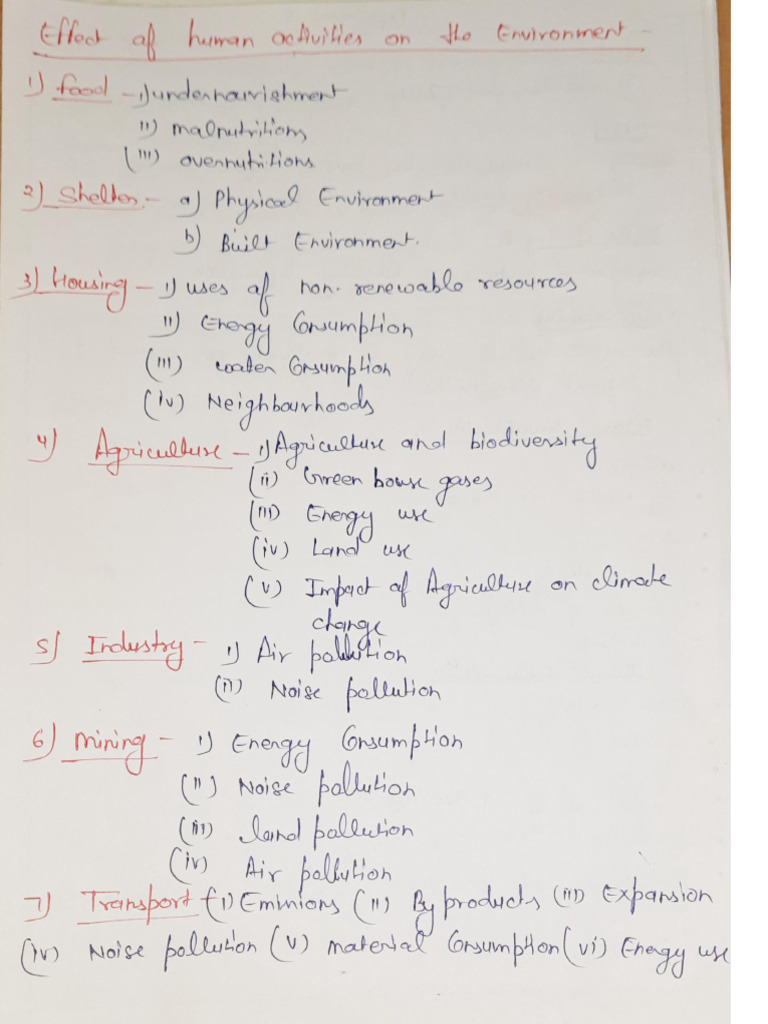 Effect of human activities on the Environment -
1) Food - i) undernourishment
ii) malnutritions
(iii) overnutritions
2) Shelter - a) Physical Environment
b) Built Environment.
3) Housing - i) uses of non-renewable resources
ii) Energy Consumption
(iii) water Consumption
(iv) Neighbourhoods
4) Agriculture - i) Agriculture and biodiversity
(ii) Green house gases
(iii) Energy use
(iv) Land use
(v) Impact of Agriculture on climate
change
5) Industry - i) Air pollution
(ii) Noise pollution
6) Mining - i) Energy Consumption
(ii) Noise pollution
(iii) land pollution
(iv) Air pollution
7) Transport - (i) Emissions (ii) By products (iii) Expansion
(iv) Noise pollution (v) material Consumption (vi) Energy use